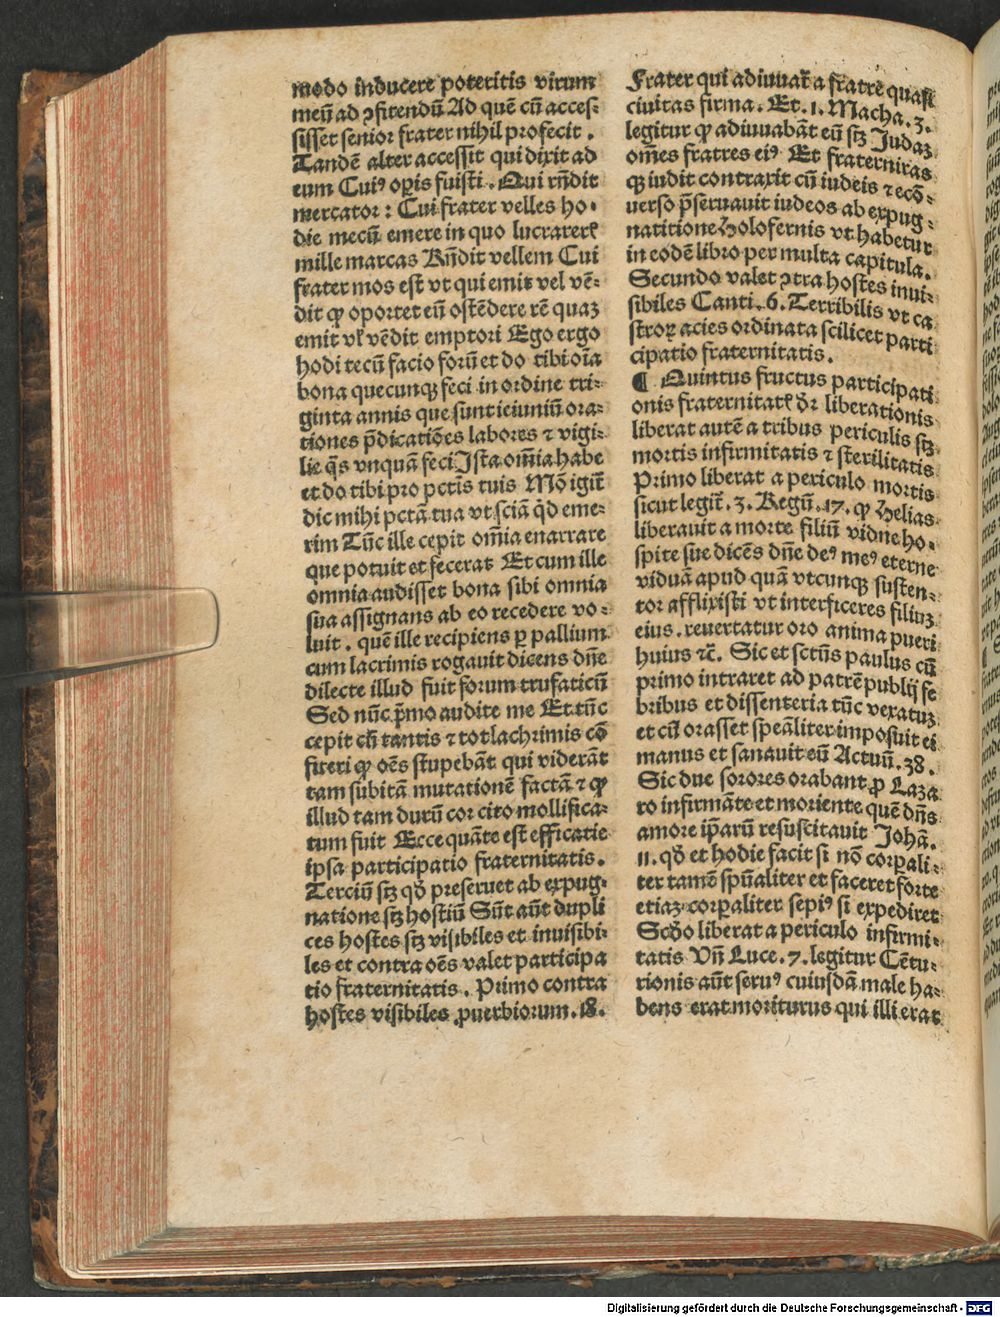 modo inducere poteritis virum
meū ad ꝯfitendū Ad quē cū acces⸗
sisset senior frater nihil profecit .
Tandē alter accessit qui dixit ad
eum Cuiꝰ oꝑis fuisti . Qui rn̄dit
mercator : Cui frater velles ho⸗
die mecū emere in quo lucrarer̄
mille marcas Rn̄dit vellem Cui
frater mos est vt qui emit vel vē⸗
dit ꝙ oportet eū ostēdere rē quaꝫ
emit vł vēdit emptori Ego ergo
hodi tecū facio forū et do tibi oīa
bona quecunqꝫ feci in ordine tri⸗
ginta annis que sunt ieiuniū ora⸗
tiones p̄dicatiōes labores ⁊ vigi⸗
lie q̄s vnquā feci Ista om̄ia habe
et do tibi pro pctīs tuis Mō igit̄
dic mihi pctā tua vt sciā qd̄ eme⸗
rim Tūc ille cepit om̄ia enarrare
que potuit et fecerat Et cum ille
omnia audisset bona sibi omnia
sua assignans ab eo recedere vo⸗
luit . quē ille recipiens ꝑ pallium
cum lacrimis rogauit dicens dn̄e
dilecte illud fuit forum trufaticū
Sed nūc p̄mo audite me Et tūc
cepit cū tantis ⁊ tot lachrimis cō
fiteri ꝙ oēs stupebāt qui viderāt
tam subitā mutationē factā ⁊ ꝙ
illud tam durū cor cito mollifica⸗
tum fuit Ecce quāte est efficatie
ipsa participatio fraternitatis .
Terciū sꝫ qd̄ preseruet ab expug⸗
natione sꝫ hostiū Sūt aūt dupli
ces hostes sꝫ visibiles et inuisibi⸗
les et contra oēs valet participa
tio fraternitatis . Primo contra
hostes visibiles ꝓuerbiorum . 18.
Frater qui adiuuat̄ a fratrē quasi
ciuitas firma . Et . 1. Macha . 3.
legitur ꝙ adiuuabāt eū sꝫ Judaꝫ
om̄es fratres eiꝰ Et fraternitas
qꝫ iudit contraxit cū iudeis ⁊ ecō⸗
uerso p̄seruauit iudeos ab expug⸗
natitione Holofernis vt habetur
in eodē libro per multa capitula .
Secundo valet ꝯtra hostes inui⸗
sibiles Canti . 6. Terribilis vt ca
stroꝝ acies ordinata scilicet parti
cipatio fraternitatis .
¶ Quintus fructus participati
onis fraternitat̄ dr̄ liberationis
liberat autē a tribus periculis sꝫ
mortis infirmitatis ⁊ sterilitatis
Primo liberat a periculo mortis
sicut legit̄ . 3. Regū . 17. ꝙ Helias
liberauit a morte filiū vidue ho⸗
spite sue dicēs dn̄e deꝰ meꝰ eterne
viduā apud quā vtcunqꝫ susten⸗
tor afflixisti vt interficeres filiuꝫ
eius . reuertatur oro anima pueri
huius ⁊c̄ . Sic et sctūs paulus cū
primo intraret ad patrē publij fe
bribus et dissenteria tūc vexatuꝫ
et cū orasset speāliter imposuit ei
manus et sanauit eū Actuū . 38.
Sic due sorores orabant ꝓ Laza
ro infirmāte et moriente quē dn̄s
amore ip̄arū resuscitauit Johā .
11. qd̄ et hodie facit si nō corꝑali⸗
ter tamē spūaliter et faceret forte
etiaꝫ corꝑaliter sepiꝰ si expediret
Scd̄o liberat a periculo infirmi⸗
tatis Vn̄ Luce . 7. legitur Cētu⸗
rionis aūt seruꝰ cuiusdā male ha⸗
bens erat moriturus qui illi erat
Digitalisierung gefördert durch die Deutsche Forschungsgemeinschaft - DFG